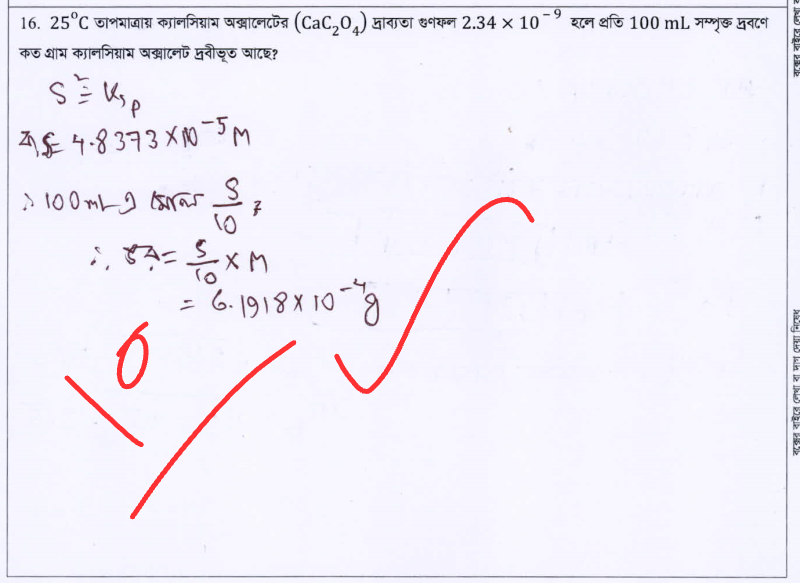 16. 25°C তাপমাত্রায় ক্যালসিয়াম অক্সালেটের (CaC₂O₄) দ্রাব্যতা গুণফল 2.34 × 10⁻⁹ হলে প্রতি 100 mL সম্পৃক্ত দ্রবণে
কত গ্রাম ক্যালসিয়াম অক্সালেট দ্রবীভূত আছে?
S² = Ksp
বা, S = 4.8373 × 10⁻⁵ M
∴ 100 mL এ মোল S/10
∴ ভর = S/10 × M
= 6.1918 × 10⁻⁴ g
10
বক্সের বাইরে লেখা বা দাগ দেয়া নিষেধ